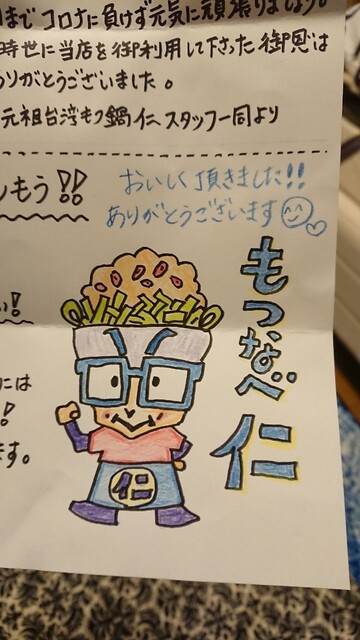 までコロナに負けず元気に頑張りましょう。
時世に当店を御利用して下さった御恩は
ありがとうございました。
元祖台湾もつ鍋仁スタッフ一同より
しもう!!
おいしく頂きました!!
ありがとうございます
い!
もつなべ
仁
には
!
ます。
仁